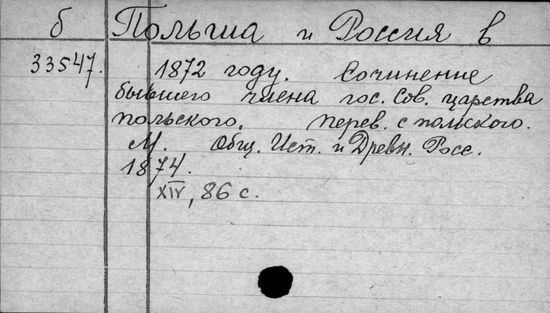 б Польша и Россия в
33547. 1872 году. Сочинение
бывшего члена гос. Сов. царства
польского. Перев. с польского.
М. Общ. Ист. и Древн. Росс.
1874.
XIV, 86 с.